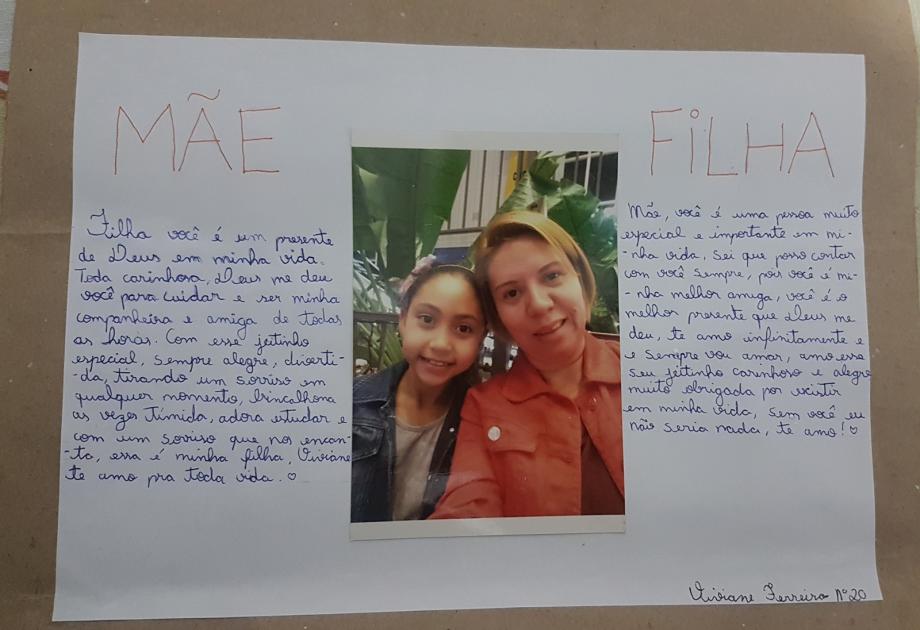 MÃE
Filha você é um presente
de Deus em minha vida.
Toda carinhosa, Deus me deu
você para cuidar e ser minha
companheira e amiga de todas
as horas. Com esse jeitinho
especial, sempre alegre, diverti-
-da, tirando um sorriso em
qualquer momento, brincalhona
as vezes tímida, adora estudar e
com um sorriso que nos encan-
-ta, essa é minha filha, Viviane
te amo pra toda vida. ♡
FiLHA
Mãe, você é uma pessoa muito
especial e importante em mi-
-nha vida, sei que posso contar
com você sempre, pois você é mi-
-nha melhor amiga, você é o
melhor presente que Deus me
deu, te amo infinitamente e
e sempre vou amar, amo esse
seu jeitinho carinhoso e alegre
muito obrigada por existir
em minha vida, sem você eu
não seria nada, te amo! ♡
Viviane Ferreira Nº20